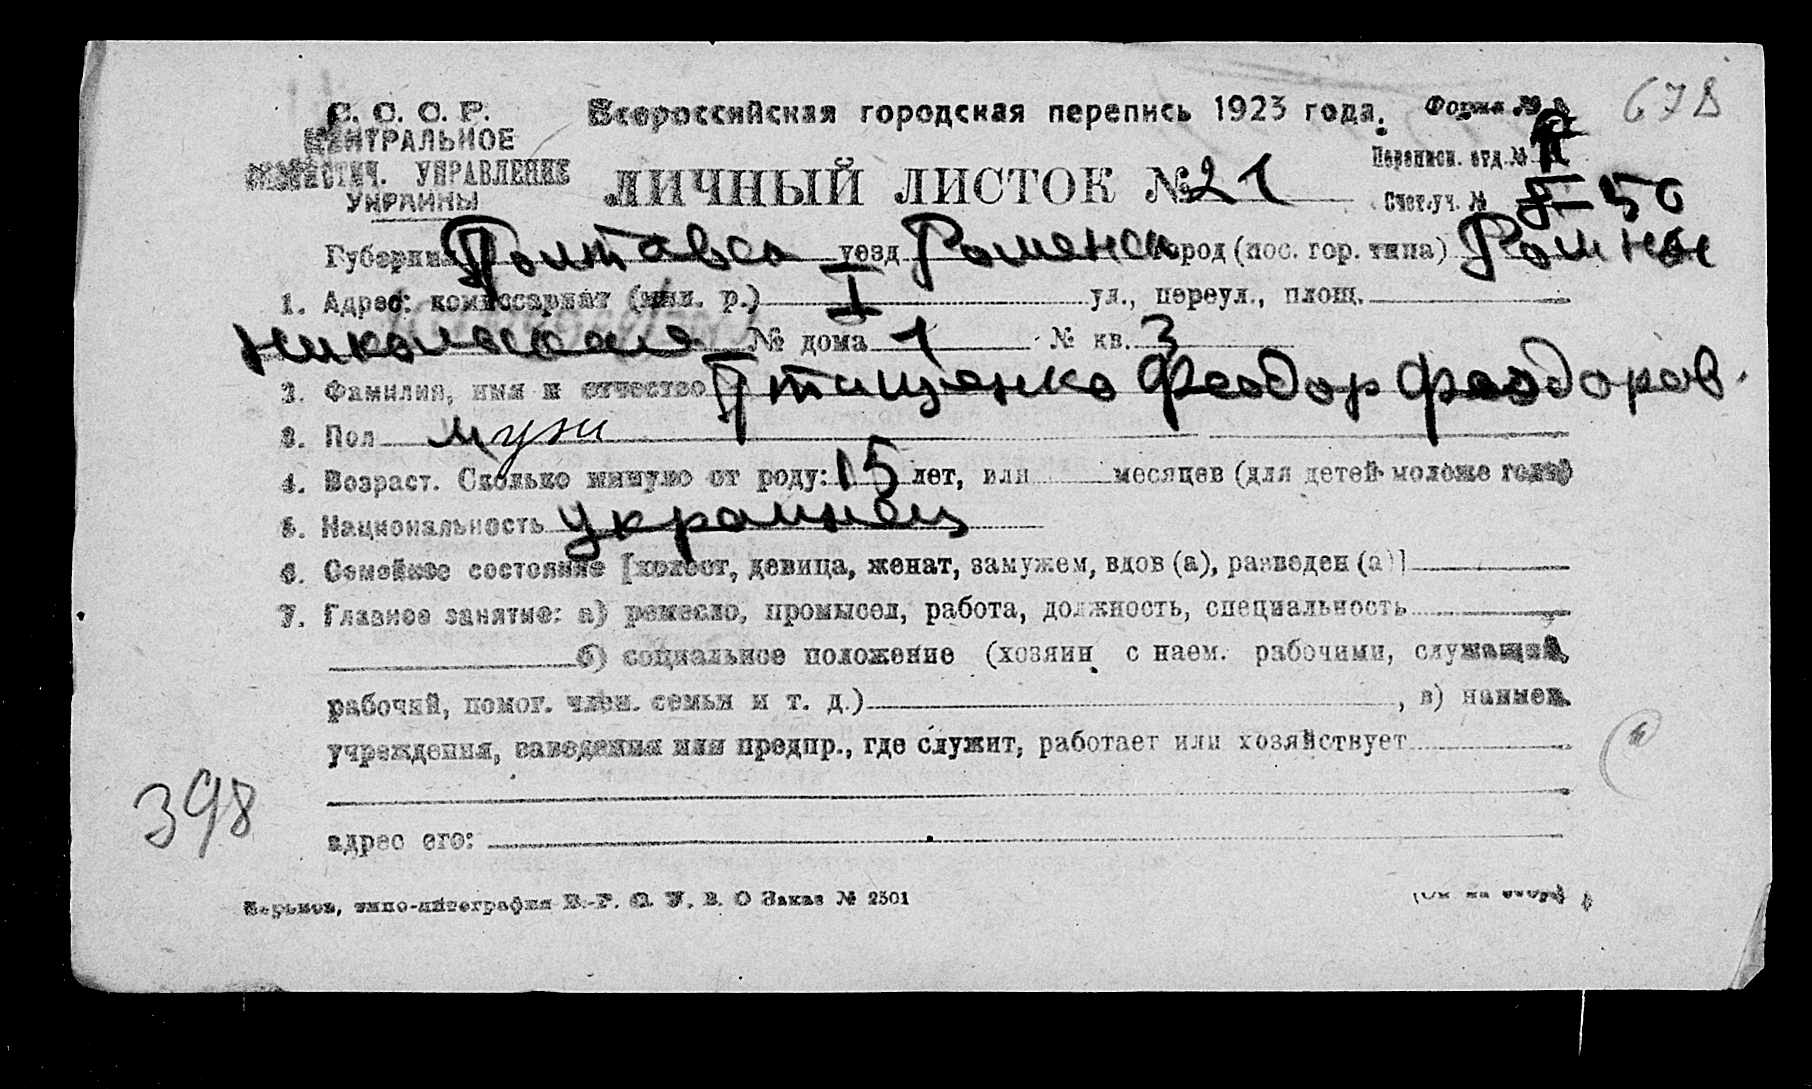 С. С. С. Р.
ЦЕНТРАЛЬНОЕ
СТАТИСТИЧ. УПРАВЛЕНИЕ
УКРАИНЫ
Всероссийская городская перепись 1923 года.
Форма №
678
Переписн. отд. №
ЛИЧНЫЙ ЛИСТОК № 21
Счет. уч. № 50
Губерния Полтавск уезд Роменск город (пос. гор. типа) Ромны
1. Адрес: комиссариат (мил. р.) I ул., переул., площ.
Никольская № дома 1 № кв. 3
2. Фамилия, имя и отчество Птащенко Феодор Феодоров.
3. Пол муж
4. Возраст. Сколько минуло от роду: 15 лет, или месяцев (для детей моложе года)
5. Национальность украинец
6. Семейное состояние [холост, девица, женат, замужем, вдов (а), разведен (а)]
7. Главное занятие: а) ремесло, промысел, работа, должность, специальность
б) социальное положение (хозяин с наем. рабочими, служащий,
рабочий, помог. член. семьи и т. д.) , в) наимен.
учреждения, заведения или предпр., где служит, работает или хозяйствует
398
адрес его:
Харьков, типо-литография Заказ № 2501